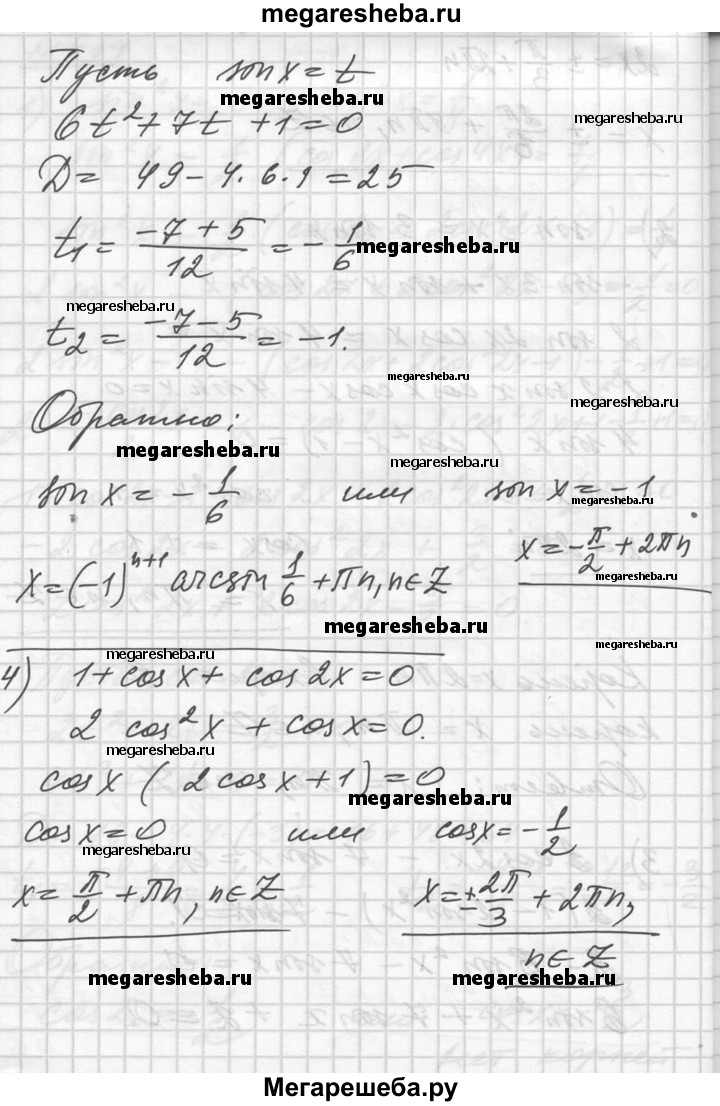 megaresheba.ru
Пусть sin x = t
megaresheba.ru
6t² + 7t + 1 = 0
megaresheba.ru
D = 49 − 4 · 6 · 1 = 25
t₁ = (−7 + 5)/12 = − 1/6
megaresheba.ru
megaresheba.ru
t₂ = (−7 − 5)/12 = −1.
megaresheba.ru
Обратно:
megaresheba.ru
megaresheba.ru
megaresheba.ru
sin x = − 1/6 или sin x = −1
megaresheba.ru
x = −π/2 + 2πn
megaresheba.ru
x = (−1)ⁿ⁺¹ arcsin 1/6 + πn, n ∈ Z
megaresheba.ru
megaresheba.ru
megaresheba.ru
4) 1 + cos x + cos 2x = 0
2 cos² x + cos x = 0.
megaresheba.ru
cos x (2 cos x + 1) = 0
megaresheba.ru
cos x = 0 или cos x = − 1/2
megaresheba.ru
x = π/2 + πn, n ∈ Z x = ± 2π/3 + 2πn,
n ∈ Z
megaresheba.ru
megaresheba.ru
Мегарешеба.ру